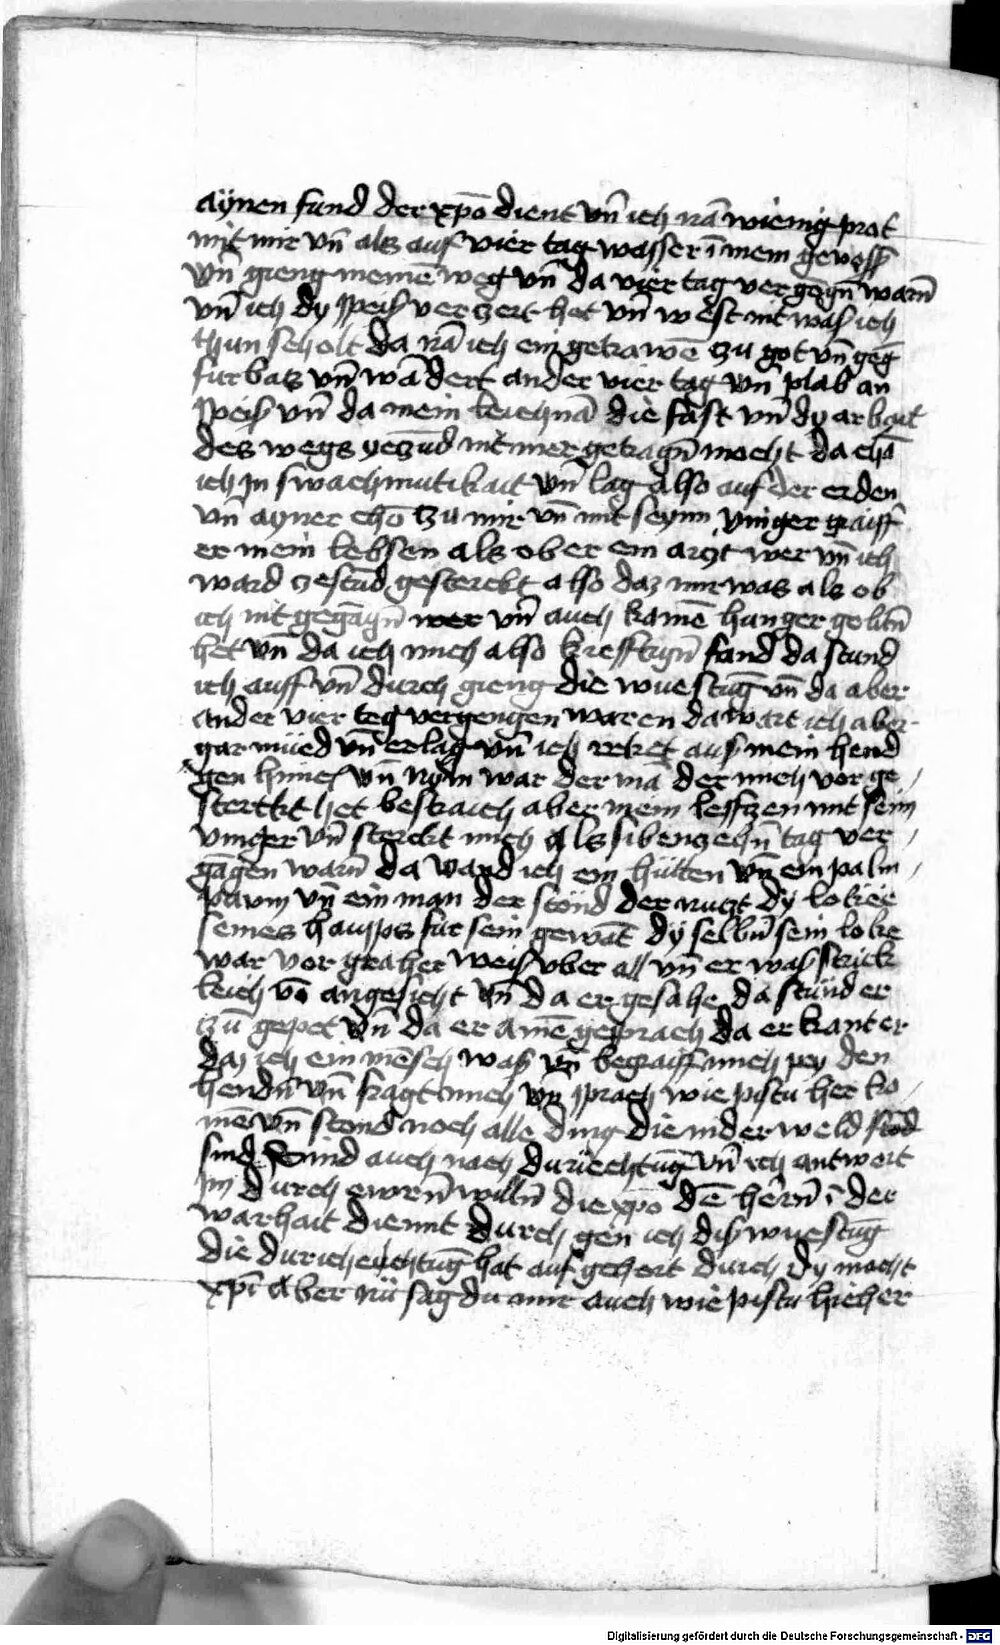 aÿnen fund der xp̄o dient vn̄ ich nā wienig prot
mit mir vn̄ als auf vier tag wasser ī mein gevess
vn̄ gieng meinē weg vn̄ da vier tag vergēgn̄ warn̄
vn̄ ich dy speiſ verzert het vn̄ west nit waſ ich
thun scholt da nā ich ein getrawē zu got vn̄ gēg
furbas vn̄ wādert ander vier tag vn̄ plab an
speiſ vn̄ da mein leichnā die fast vn̄ dy arbait
des wegs yeczūd nit mer getragn̄ mocht da chā
ich jn swachmutikait vn̄ lag also auf der erden
vn̄ ayner chō zu mir vn̄ mit seym vinger graiff
er mein lebsen als ob er ein arczt wer vn̄ ich
ward zestūd gesterckt also daz mir was als ob
ich nit gegāgn̄ wer vn̄ auch kainē hunger gelitn̄
het vn̄ da ich mich also krefftign̄ fand da stund
ich auff vn̄ durch gieng die wuestūg vn̄ da aber
ander vier teg vergengen waren da wart ich aber
gar müed vn̄ erlag vn̄ ich rekct auſ mein hend
gen himel vn̄ nym war der mā der mich vor ge
sterckt het bestraich aber mein leffzen mit seim
vinger vn̄ sterckt mich als sibenzechn̄ tag ver
gāgen warn̄ da vand ich ein hütten vn̄ ein palm
paum vn̄ ein man der stönd der nuczt dy lokee
seines haupps fur sein gewāt dy selbn̄ sein loke
war vor graher weiſ vber all vn̄ er waſ strick
leich vō angesicht vn̄ da er gesahe da stund er
zu gepet vn̄ da er amē gesprach da erkant er
daz ich ein mēsch waſ vn̄ begraiff mich pey den
hendn̄ vn̄ fragt mich vn̄ sprach wie pistu her ko
mē vn̄ stend noch alle ding die in der weld stōd
sind Seind auch nach duriechtūg vn̄ ich antwort
jm durch ewrn̄ willn̄ die xp̄o dē hern̄ ī der
warhait dient durch gen ich diſ wuestūg
die durichechtūg hat auf gehort durch dy macht
xp̄i aber nū sag du mir auch wie pistu hieher
Digitalisierung gefördert durch die Deutsche Forschungsgemeinschaft - DFG